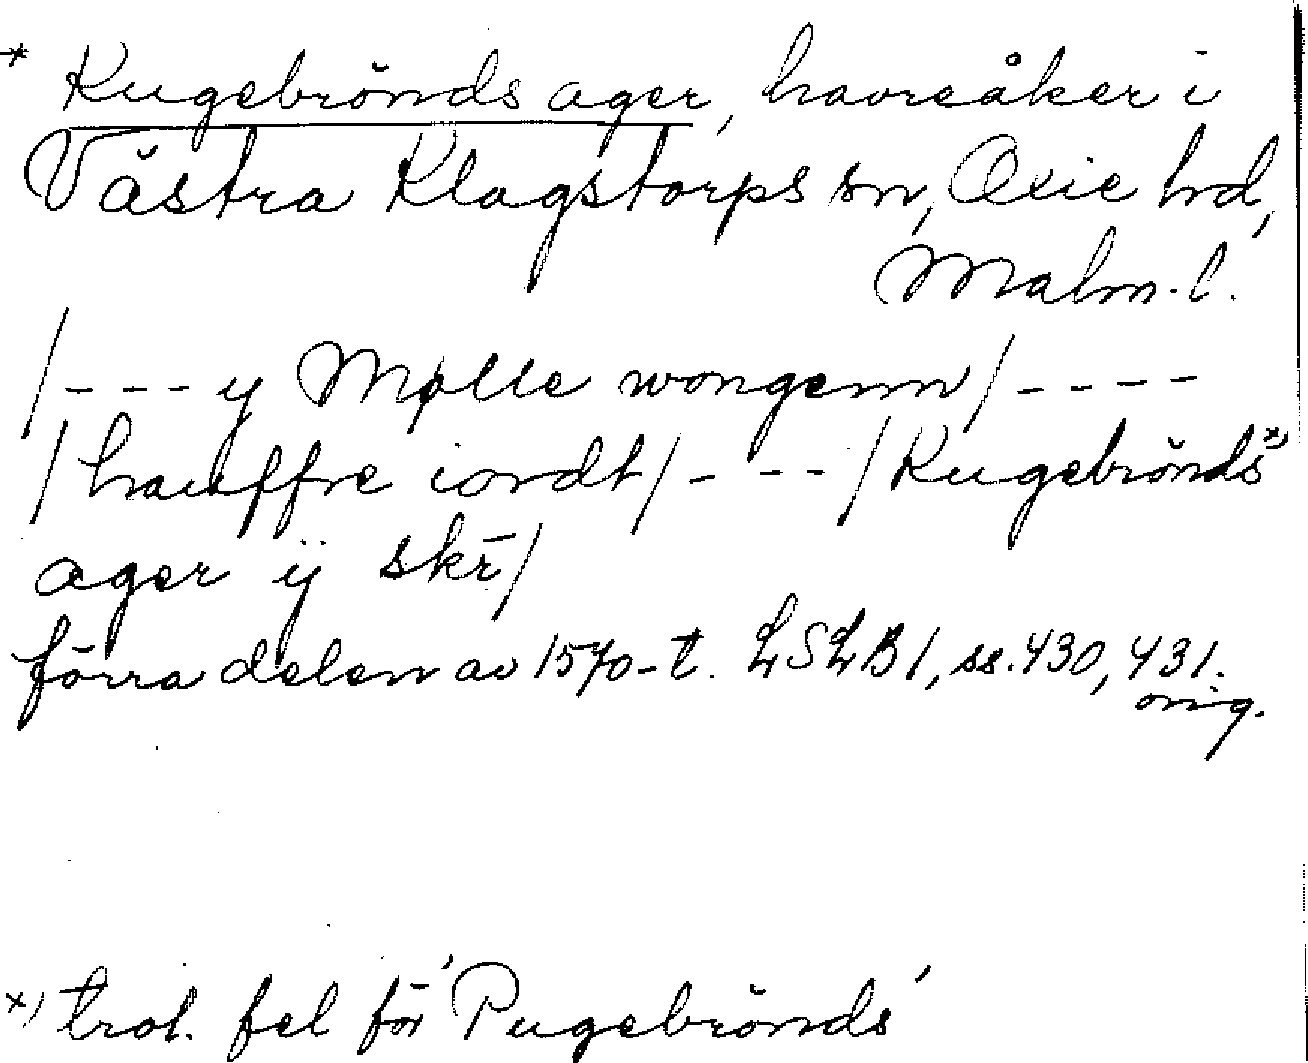 * Rugebrönds ager, havreåker i
Västra Klagstorps sn, Oxie hd,
Malm. l.
/ - - - y Mølle wongenn / - - - -
/ hauffre iordt / - - - / Rugebrönds x)
ager ij skr̄ /
förra delen av 1570-t. LSLB 1, ss. 430, 431.
orig.
x) trol. fel för 'Pugebrönds'